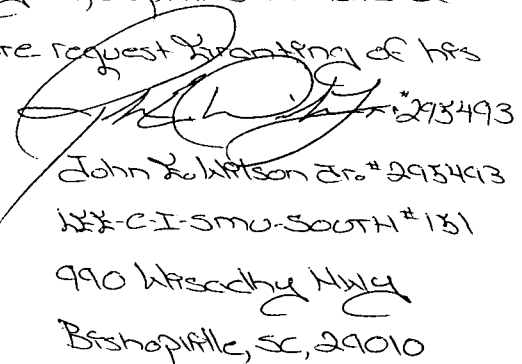 re request Granting of his
#295493
John E. Wilson Jr. #295493
LEE-C-I-SMU-SOUTH #151
990 Wisacky Hwy
Bishopville, SC, 29010